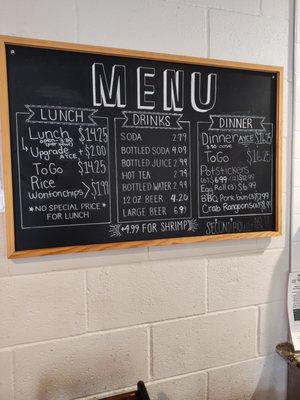 MENU
LUNCH
Lunch $14.25
Upgrade + $2.00
AYCE
To Go $14.25
Rice
Wonton chips $1.99
*NO SPECIAL PRICE
FOR LUNCH
DRINKS
SODA 2.79
BOTTLED SODA 4.09
BOTTLED JUICE 2.99
HOT TEA 2.79
BOTTLED WATER 2.99
12 OZ BEER 4.20
LARGE BEER 6.99
$4.99 FOR SHRIMP
DINNER
Dinner AYCE $16.25
To Go $16.25
Potstickers
(6) $6.99
Egg Roll (3) $6.99
BBQ Pork buns (2)
Crab Rangoons